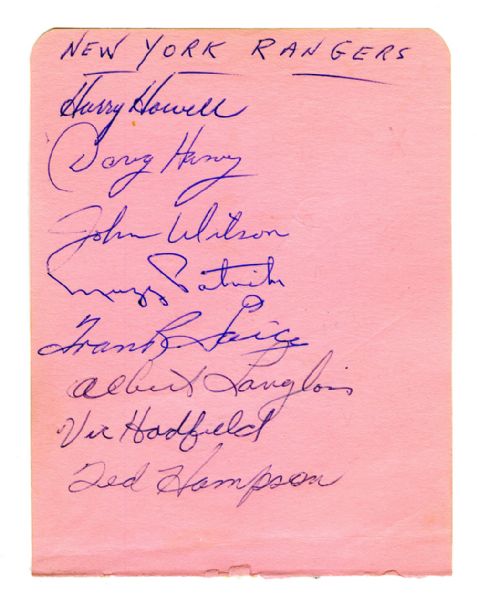 NEW YORK RANGERS
Harry Howell
Doug Harvey
John Wilson
Muzz Patrick
Frank Paice
Albert Langlois
Vic Hadfield
Ted Hampson